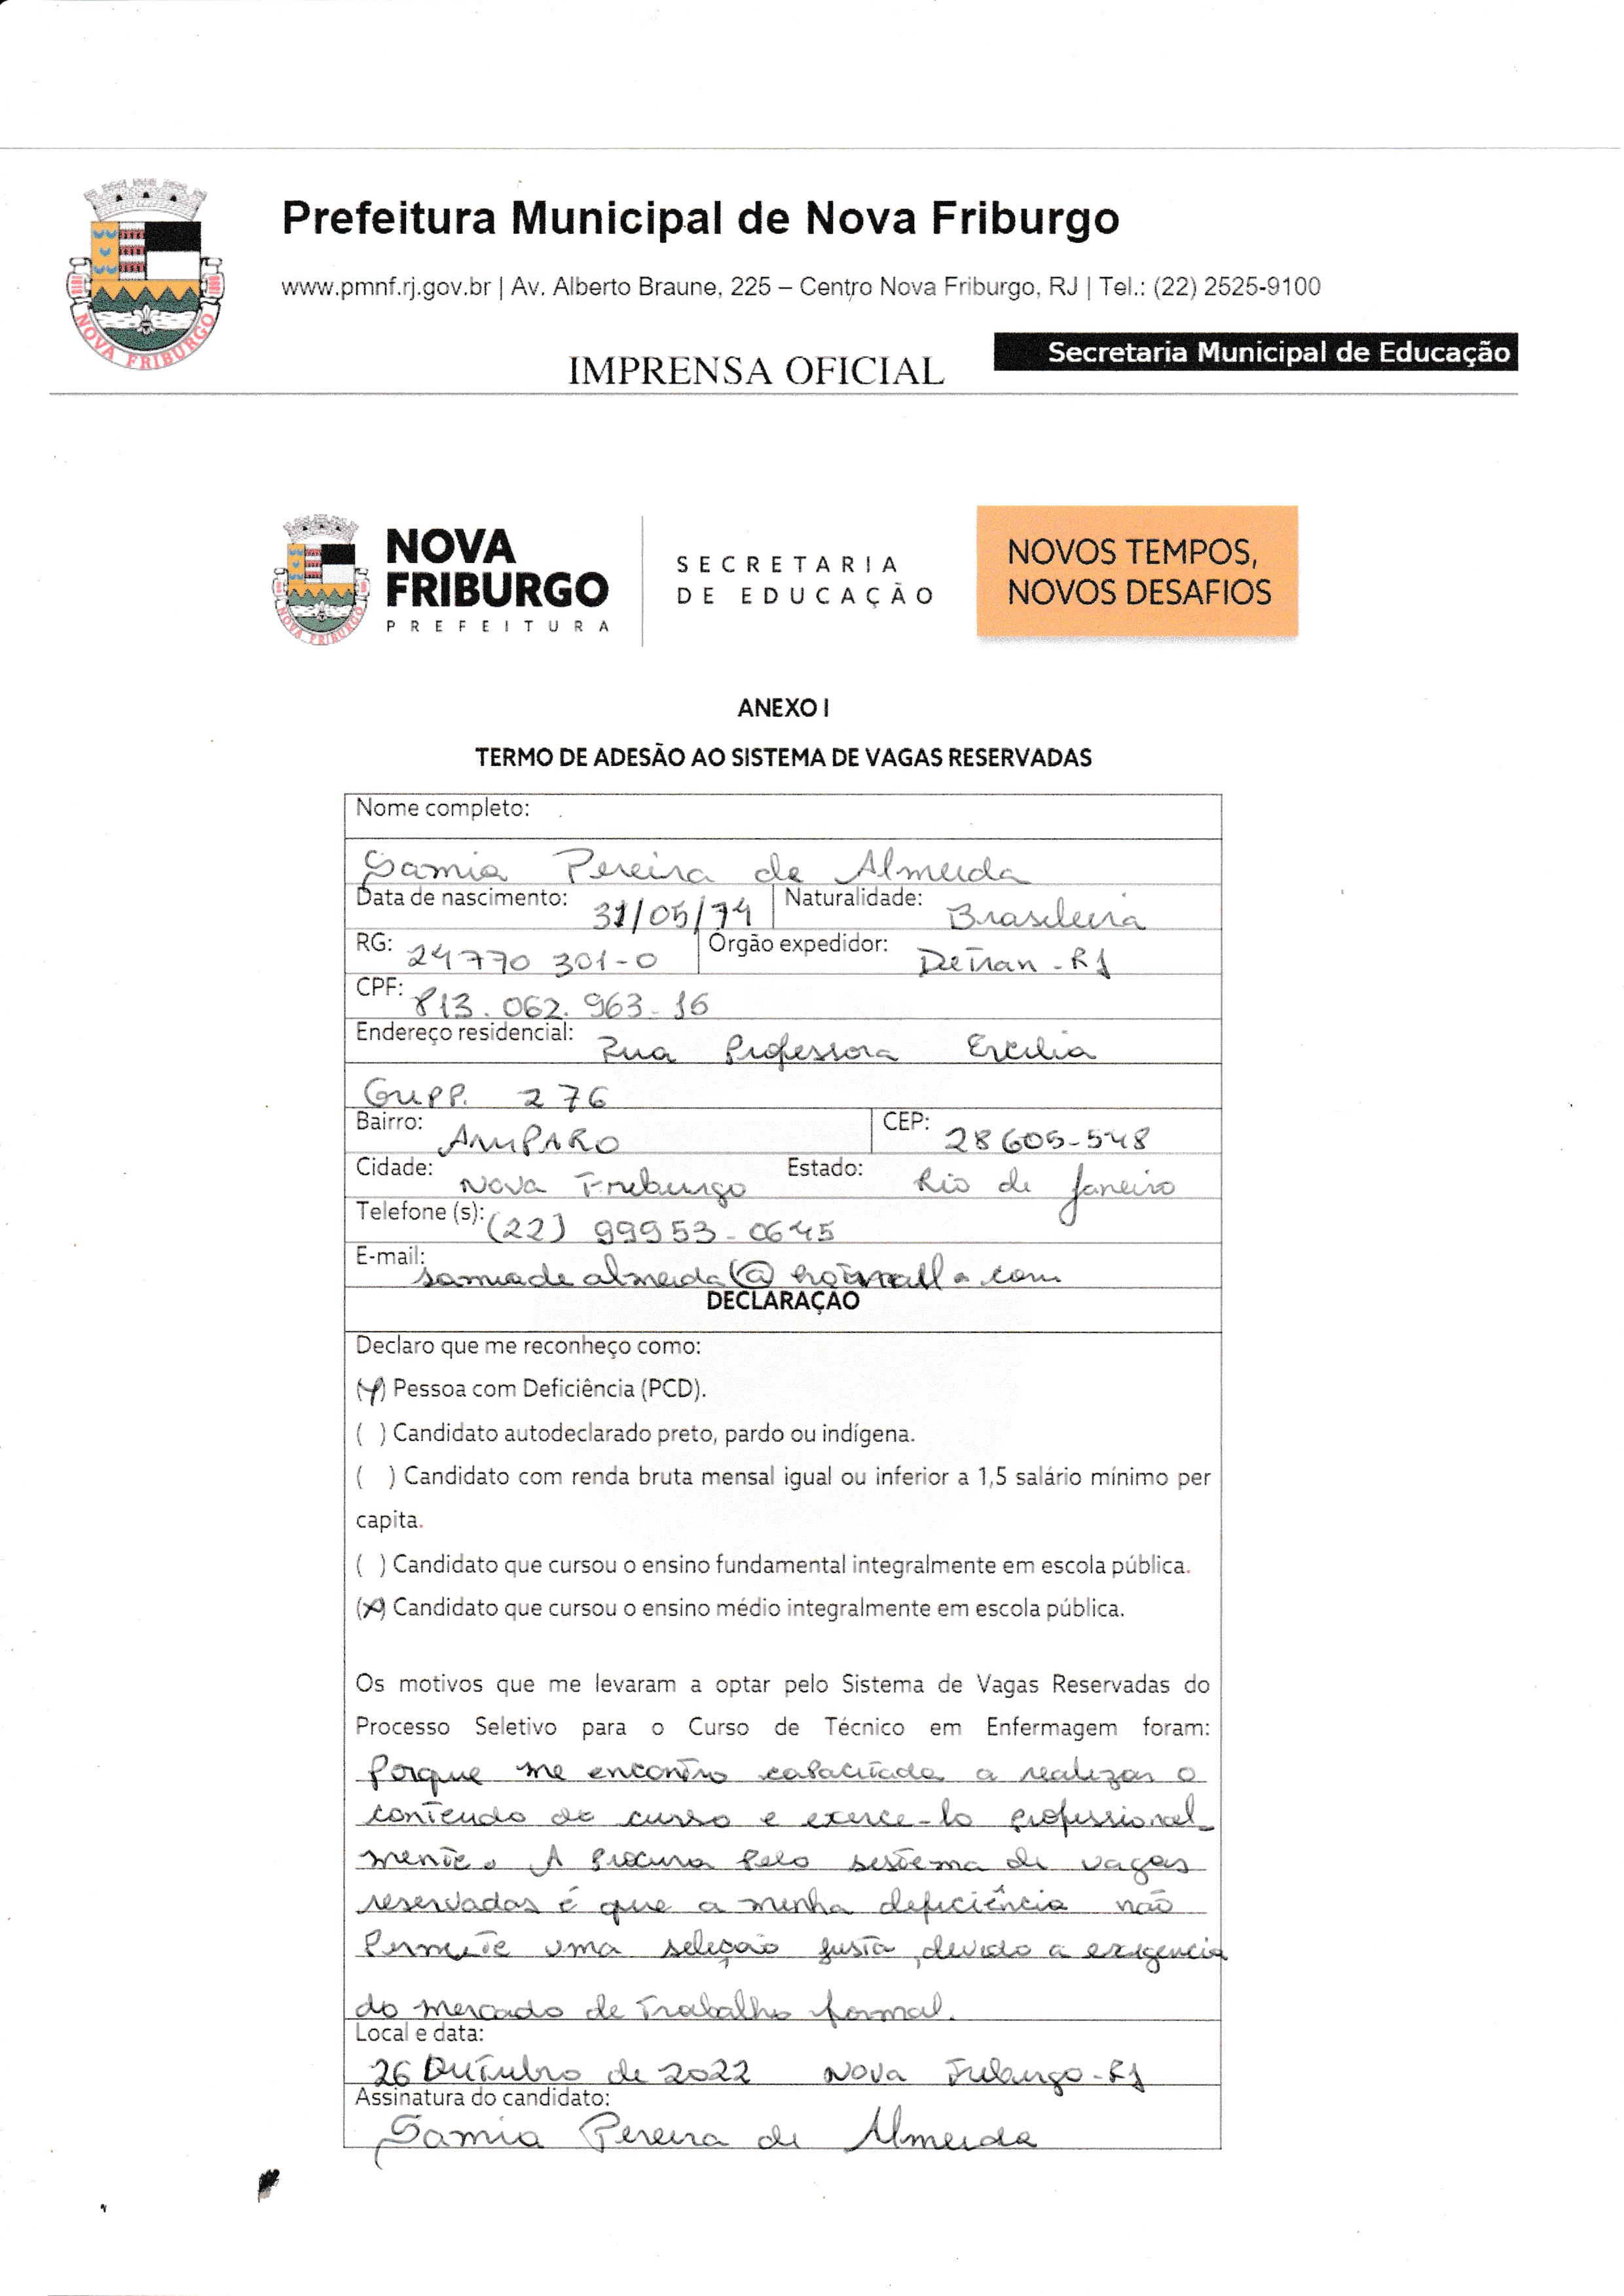 Prefeitura Municipal de Nova Friburgo
www.pmnf.rj.gov.br | Av. Alberto Braune, 225 – Centro Nova Friburgo, RJ | Tel.: (22) 2525-9100
Secretaria Municipal de Educação
IMPRENSA OFICIAL
NOVA FRIBURGO
NOVA
FRIBURGO
PREFEITURA
SECRETARIA
DE EDUCAÇÃO
NOVOS TEMPOS,
NOVOS DESAFIOS
NOVA FRIBURGO
ANEXO I
TERMO DE ADESÃO AO SISTEMA DE VAGAS RESERVADAS
Nome completo:
Samia Pereira de Almeida
Data de nascimento: 31/05/74 Naturalidade: Brasileira
RG: 24770 301-0 Órgão expedidor: Detran-RJ
CPF: 813.062.963-16
Endereço residencial: Rua Professora Ercilia
Gupp. 276
Bairro: AMPARO CEP: 28605-548
Cidade: Nova Friburgo Estado: Rio de Janeiro
Telefone (s): (22) 99953-0645
E-mail: samiadealmeida@hotmail.com
DECLARAÇÃO
Declaro que me reconheço como:
(X) Pessoa com Deficiência (PCD).
( ) Candidato autodeclarado preto, pardo ou indígena.
( ) Candidato com renda bruta mensal igual ou inferior a 1,5 salário mínimo per
capita.
( ) Candidato que cursou o ensino fundamental integralmente em escola pública.
(X) Candidato que cursou o ensino médio integralmente em escola pública.
Os motivos que me levaram a optar pelo Sistema de Vagas Reservadas do
Processo Seletivo para o Curso de Técnico em Enfermagem foram:
Porque me encontro capacitada a realizar o
conteudo do curso e exerce-lo profissional-
mente. A procura pelo sistema de vagas
reservadas é que a minha deficiência não
Permite uma seleção justa, devido a exigencia
do mercado de Trabalho formal.
Local e data:
26 Outubro de 2022 Nova Friburgo-RJ
Assinatura do candidato:
Samia Pereira de Almeida